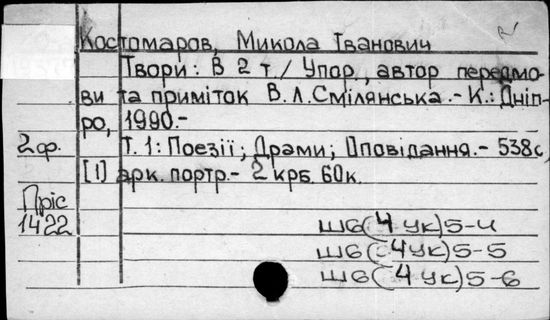 Костомаров, Микола Іванович
Твори: В 2 т./ Упор., автор передмо-
ви та приміток В.Л.Смілянська.- К.: Дніп-
ро, 1990.-
2 ф. Т. 1: Поезії; Драми; Оповідання.- 538с,
[1] арк. портр.- 2 крб. 60к.
Пріс
1422
Ш6(4 Ук)5-4
Ш6(4 Ук)5-5
Ш6(4 Ук)5-6